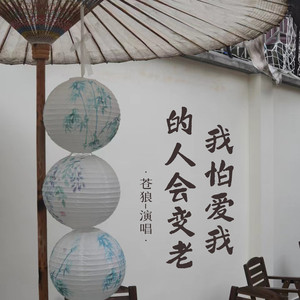 我怕爱我
的人会变老
·苍狼-演唱·